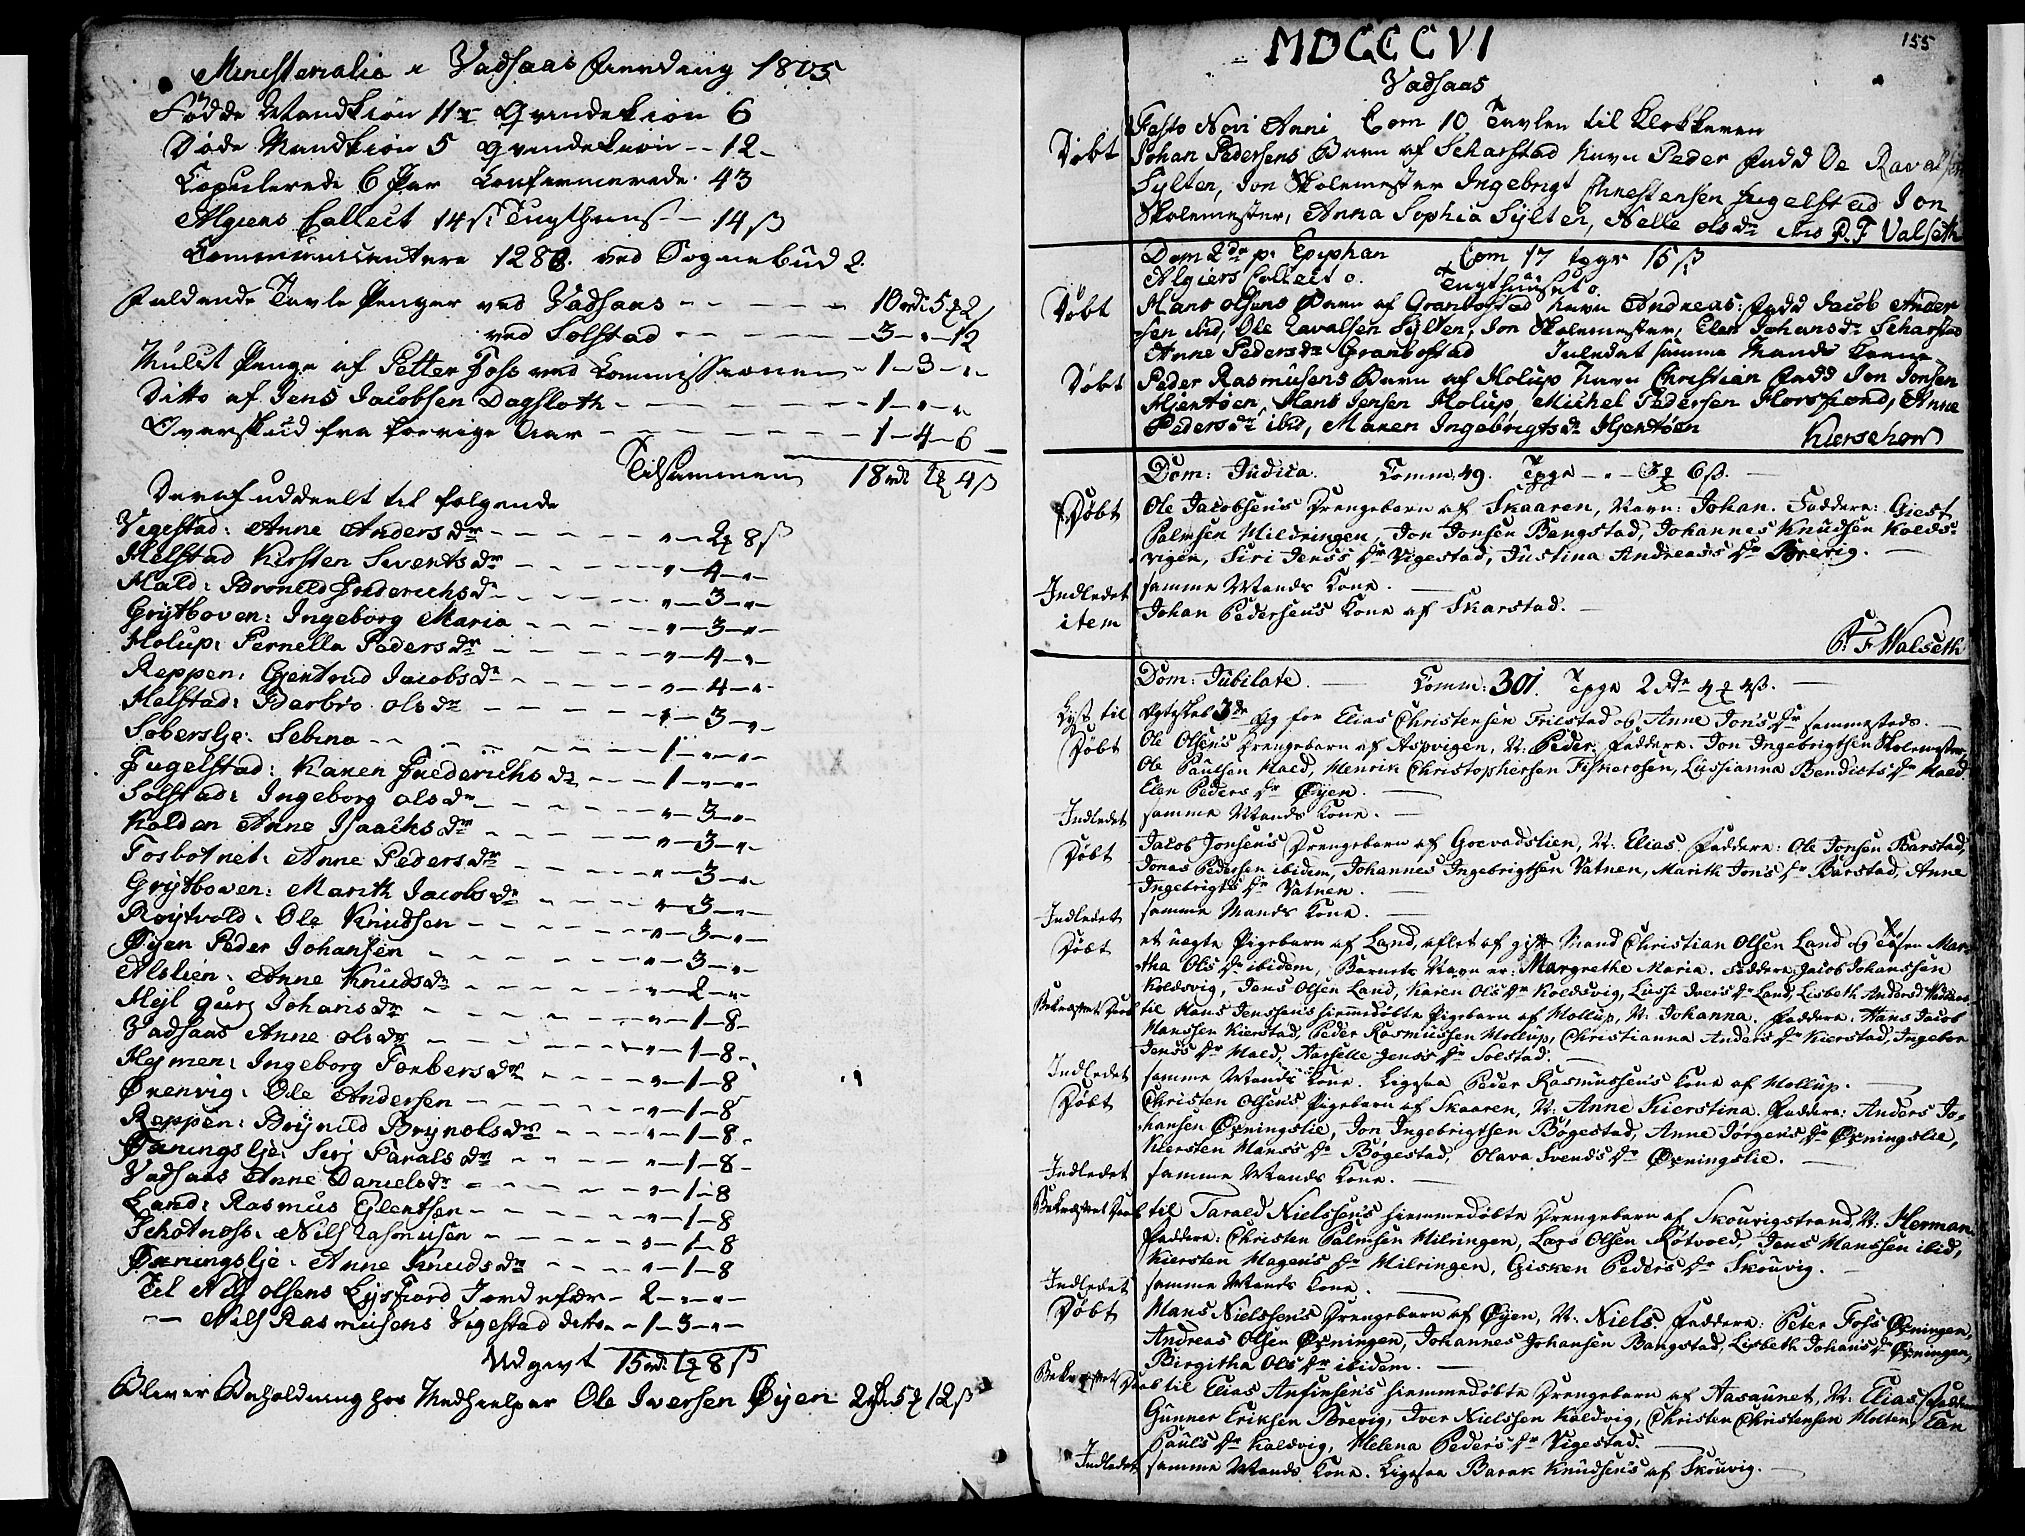 Ministerialia i Vadsaas Fierding 1805
Fødde Mandkiøn 11 Qvindekiøn 6
Døde Mandkiøn 5 Qvindekiøn - - 12 -
Copulerede 6 Par Confirmerede 43
Algiers Collect 14 ß Tugthuus - 14 ß
Communicentere 1288. ved Sognebud 2.
Faldende Tavle Penger ved Vadsaas - - - - - 10 rd 5 2
ved Solstad - - - - - 3 - " - 12
Mulct Penge af Petter Foss ved Commissionen - 1 - 3 - " -
Ditto af Jens Jacobsen Dagsloth - - - - - - 1 - " - "
Overskud fra forrige Aar - - - - - - - 1 - 4 - 6
Tilsammen 18 rd 4 ß
Deraf uddeelt til følgende
Vigestad: Anne Anders dr - - - - - " - 2 8 ß
Helstad Kirsten Siverts dr - - - - " - 4 - " -
Hald: Bronild Friderichs dr - - - - " - 3 - " -
Grÿtboven: Ingeborg Maria - - - - " - 3 - " -
Molup: Pernella Peders dr - - - - " - 4 - " -
Reppen: Gjertrud Jacobs dr - - - - " - 4 - " -
Helstad: Barbro ols dr - - - - " - 3 - " -
Soberslje: Sebina - - - - - - 1 - " - " -
Fugelstad: Karen Friederichs dr - - - 1 - " - " -
Solstad: Ingeborg ols dr - - - - - " - 3 - " -
Kolden Anne Isaachs dr - - - - - " - 3 - " -
Fosbotnet: Anne Peders dr - - - - " - 3 - " -
Grÿtboven: Marith Jacobs dr - - - - " - 3 - " -
Røÿtvold: Ole Knudsen - - - - - " - 3 - " -
Øyen Peder Johansen - - - - - " - 3 - " -
Alslien: Anne Knuds dr - - - - - " - 2 - " -
Mejl gurj Johans dr - - - - - " - 1 - 8 -
Vadsaas Anne ols dr - - - - - " - 1 - 8
Hejmen: Ingeborg Torbers dr - - - - " - 1 - 8
Ørenvig: Ole Andersen - - - - - " - 1 - 8
Reppen: Brynild Brynols dr - - - " - 1 - 8 -
Øxningslje: Sirj Parals dr - - - - " - 1 - 8 -
Vadsaas Anne Daniels dr - - - - " - 1 - 8
Land: Rasmus Ejlertsen - - - - - " - 1 - 8
Schotnoss: Nils Rasmusen - - - - - " - 1 - 8
Øxningslje: Anne Knuds dr - - - - " - 1 - 8
Til Nils olsens Lysfiord Jordefær - 2 - " - " -
- - Nils Rasmusens Vigestad ditto - - 1 - 3 - " -
Udgivt 15 rd 8 ß
Bliver Beholdning hos Medhielper Ole Iversen Øyen 2 rd 5 12 ß
155
MDCCCVI
Vadsaas
Festo Novi Anni Com 10 Tavlen til Klokkeren
Døbt Johan Pedersens Barn af Scharstad Navn Peder Fadd Oe Ravalsen
Sylten, Jon Skolemester Ingebrigt Christensen Fugelstad Jon
Skolemester, Anna Sophia Sylten, Nelle ols dr P. F Valseth
Dom 2da p. Epiphan Com 17 tpgr 15 ß
Algiers Collect o. Tugthuuset o
Døbt Hans olsens Barn af Granbostad Navn Andreas: Fadd Jacob Ander
sen ibd, Ole Lavalsen Sylten, Jon Skolemester, Elen Johans dr Scharstad
Anne Peders dr Granbostad Inledet samme Mands Kone
Døbt Peder Rasmusens Barn af Molup Navn Christian Fadd Jon Jonsen
Hjertøen, Hans Jensen Molup, Michel Pedersen Horsfiord, Anne
Peders dr ibd, Maren Ingebrigts dr Hjertøen Kierschow
Dom: Judica. Comm: 49. Tpge - " - 6 ß. -
Døbt Ole Jacobsens Drengebarn af Skaaren, Navn: Johan. Faddere: Giert
Palmsen Mildringen, Jon Jonsen Bangstad, Johannes Knudsen Kolds-
vigen, Siri Jens's dr Vigestad, Justina Andreas's dr Brevig. -
Indledet samme Mands Kone. -
item Johan Pedersens Kone af Skarstad. -
P. F Walseth
Dom: Jubilate. - Comm: 301. Tpge 2 rdr 4 4 ß. -
Lyst til Ægteskab 3de Gg for Elias Christensen Frilstad og Anne Jons dr sammesteds. -
Døbt Ole Olsens Drengebarn af Aspvigen, N: Peder. Faddere: Jon Ingebrigtsen Skolemester,
Ole Paulsen Hald, Henrik Christophersen Fiskerosen, Lussianna Bendicts dr Hald,
Elen Peders dr Øÿen. -
Indledet samme Mands Kone. -
Døbt Jacob Jonsens Drengebarn af Goevadslien, N: Elias. Faddere: Ole Jonsen Barstad,
Jonas Pedersen ibidem, Johannes Ingebrigtsen Vatnen, Marith Jons dr Barstad, Anne
Ingebrigts dr Vatnen. -
Indledet samme Mands Kone. -
Døbt et uægte Pigebarn af Land, aflet af gift Mand Christian Olsen Land og Mar-
tha Ols dr ibidem, Barnets Navn er: Margrethe Maria. Faddere Jacob Johanssen
Koldsvig, Jens Olsen Land, Karen Ols dr Koldsvig, Lussi Ivers dr Land, Lisbeth Anders dr
Bekræftet Daab til Hans Jenssens hiemmedøbte Pigebarn af Mollup, N: Johanna. Faddere: Hans Jacob
Hanssen Kierstad, Peder Rasmussen Mollup, Christianna Anders dr Kierstad, Ingebor
Jens's dr Hald, Karselle Jens's dr Solstad. -
Indledet samme Mands Kone. Ligesaa Peder Rasmussens Kone af Mollup. -
Døbt Christen Olsens Pigebarn af Skaaren, N: Anne Kierstina. Faddere: Anders Jo-
hansen Øxningslie, Jon Ingebrigtsen Bøgestad, Anne Jørgens dr Øxningslie,
Kiersten Hans's dr Bøgestad, Olava Svends dr Øxningslie. -
Indledet samme Mands Kone. -
Bekræftet Daab til Tarald Nielssens hiemmedøbte Drengebarn af Skouvigstrand, N: Herman.
Faddere: Christen Palmsen Milringen, Lars Olsen Røtvold, Jens Hanssen ibid,
Kiersten Magens dr Milringen, Gisken Peders dr Skouvig. -
Indledet samme Mands Kone. -
Døbt Hans Nielssens Drengebarn af Øÿen, N: Niels. Faddere: Peter Foss Øxningen,
Andreas Olsen Øxningen, Johannes Johansen Bangstad, Lisbeth Johans dr Øxningen,
Birgitha Ols dr ibidem. -
Bekræftet Daab til Elias Anfinsens hiemmedøbte Drengebarn af Aasaunet, N: Elias, Faddere
Gunner Eriksen Brevig, Iver Nielssen Koldvig, Christen Christensen Molten, Elen
Pauls dr Kaldvig, Helena Peders dr Vigestad. -
Indledet samme Mands Kone. Ligesaa Barak Knudsens af Skouvig. -